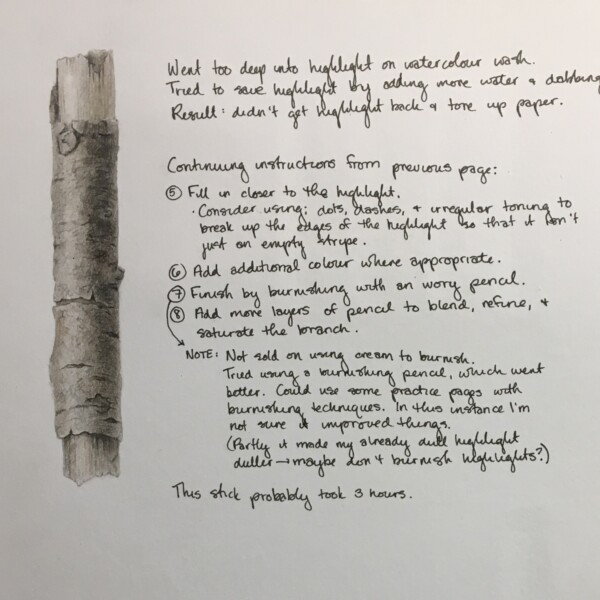 Went too deep into highlight on watercolour wash.
Tried to save highlight by adding more water & dabbing
Result: didn't get highlight back & tore up paper.
Continuing instructions from previous page:
⑤ Fill in closer to the highlight.
· Consider using: dots, dashes, & irregular toning to
break up the edges of the highlight so that it isn't
just an empty stripe.
⑥ Add additional colour where appropriate.
⑦ Finish by burnishing with an ivory pencil.
⑧ Add more layers of pencil to blend, refine, &
saturate the branch.
NOTE: Not sold on using cream to burnish.
Tried using a burnishing pencil, which went
better. Could use some practice pages with
burnishing techniques. In this instance I'm
not sure it improved things.
(Partly it made my already dull highlight
duller → maybe don't burnish highlights?)
This stick probably took 3 hours.